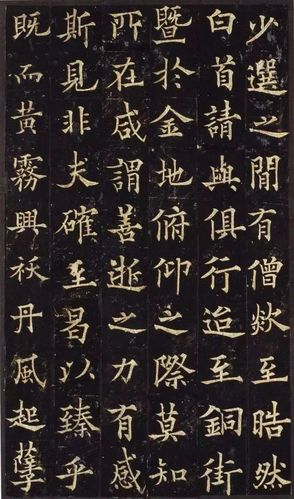 少選之間有僧欻至皓然
白首請與俱行迨至銅街
暨於金地俯仰之際莫知
所在咸謂善逝之力有感
斯見非夫確至曷以臻乎
既而黃霧興祅丹風起孽